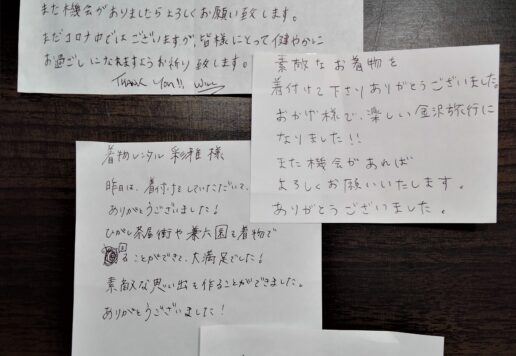 また機会がありましたらよろしくお願い致します。
まだコロナ中ではございますが、皆様にとって健やかに
お過ごしになれますようお祈り致します。
Thank You!!
素敵なお着物を
着付けて下さりありがとうございました。
おかげ様で、楽しい金沢旅行に
なりました!!
また機会があれば
よろしくお願いいたします。
ありがとうございました。
着物レンタル 彩雅 様
昨日は、着付けをしていただいて、
ありがとうございました!
ひがし茶屋街や兼六園を着物で
回ることができて、大満足でした!
素敵な思い出を作ることができました。
ありがとうございました!